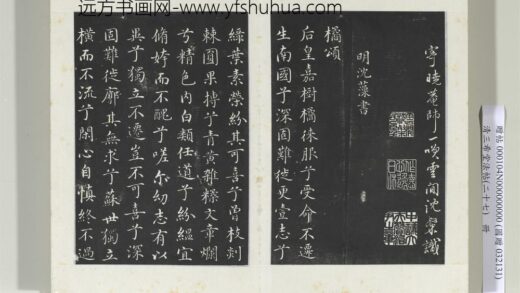 远方书画网-www.yfshuhua.com
寄曉菴師一噱雲間沈粲識
明沈藻書
橘頌
后皇嘉樹橘徠服兮受命不遷
生南國兮深固難徙更壹志兮
綠葉素榮紛其可喜兮曾枝剡
棘圓果摶兮青黃雜糅文章爛
兮精色內白類任道兮紛縕宜
脩姱而不醜兮嗟爾幼志有以
異兮獨立不遷豈不可喜兮深
固難徙廓其無求兮蘇世獨立
橫而不流兮閉心自慎終不過
贈帖 000104N000000000 (舊贈 032131)
清三希堂法帖(二十七) 冊